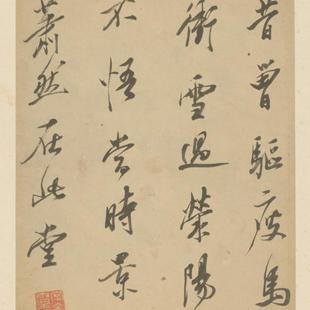 昔曾驅疲馬
衝雪過榮陽
不悟當時景
蕭然在此堂